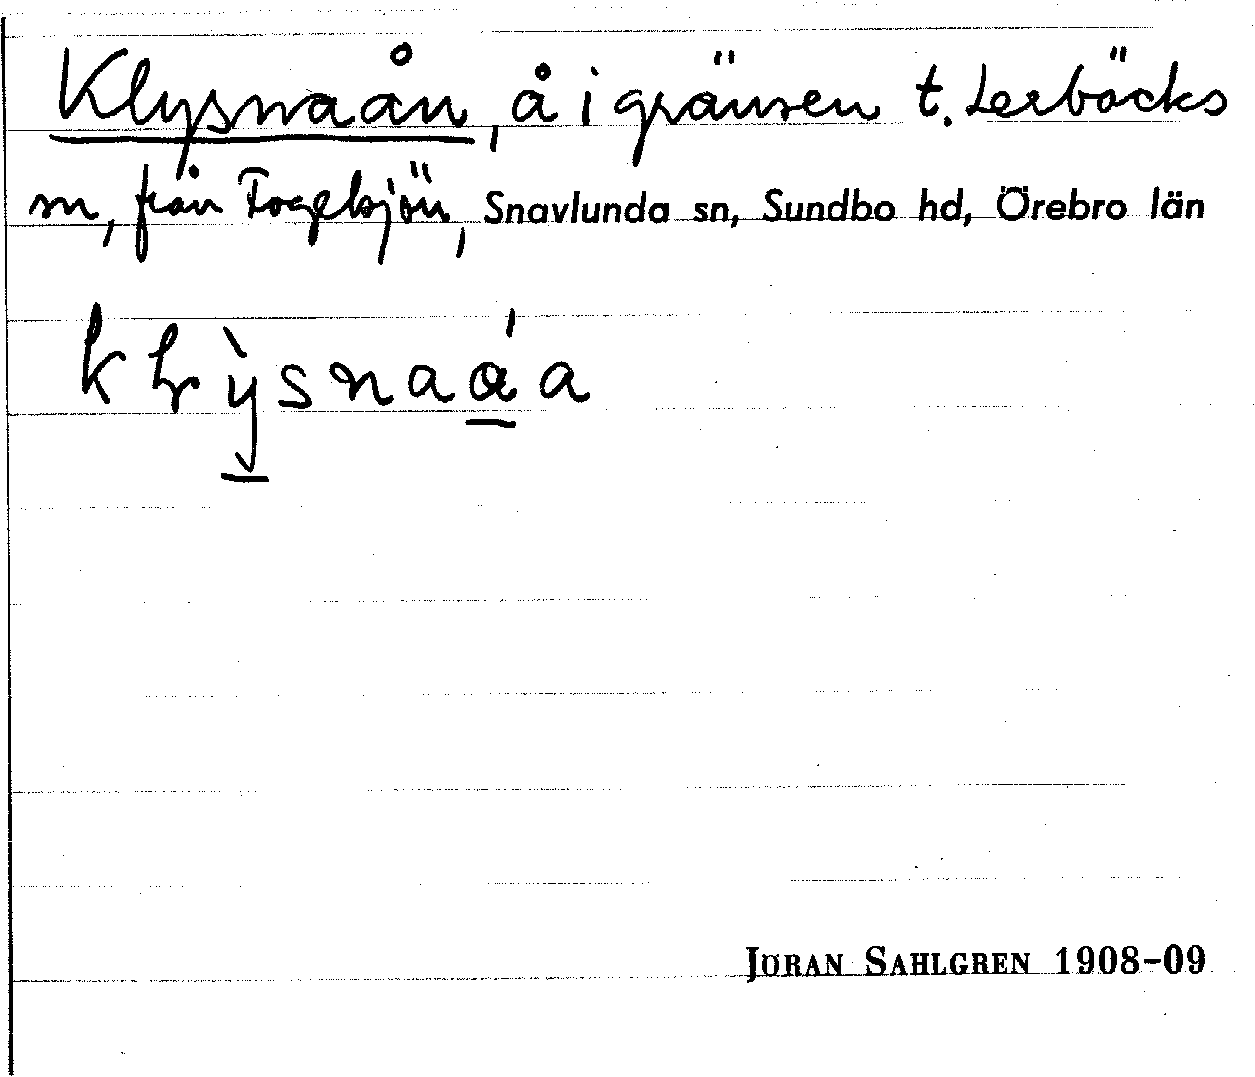 Klysnaån, å i gränsen t. Lerbäcks
sn, från Fogelsjön, Snavlunda sn, Sundbo hd, Örebro län
JÖRAN SAHLGREN 1908-09